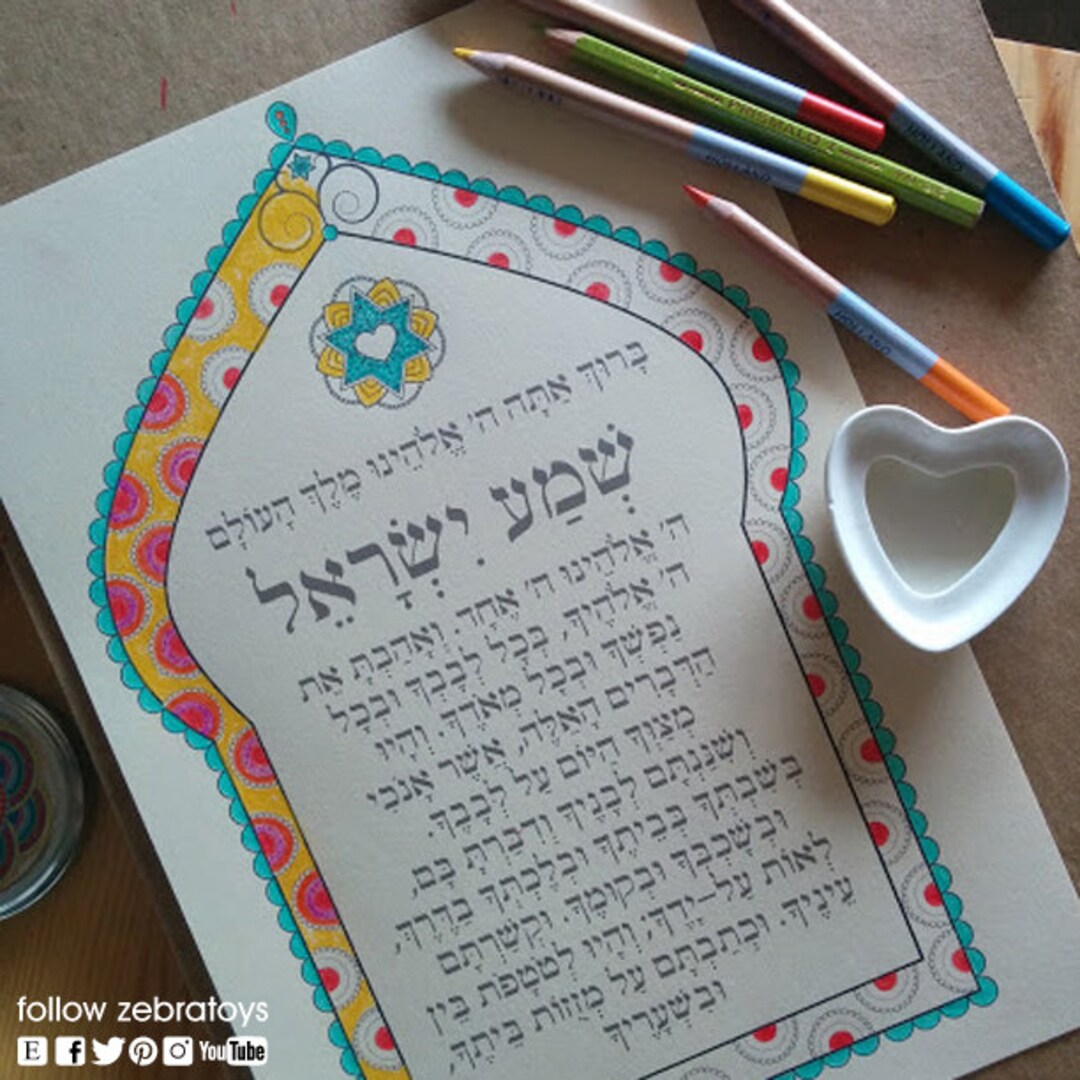 בָּרוּךְ אַתָּה ה' אֱלֹהֵינוּ מֶלֶךְ הָעוֹלָם
שְׁמַע יִשְׂרָאֵל
ה' אֱלֹהֵינוּ ה' אֶחָד. וְאָהַבְתָּ אֵת
ה' אֱלֹהֶיךָ, בְּכָל לְבָבְךָ וּבְכָל
נַפְשְׁךָ וּבְכָל מְאֹדֶךָ. וְהָיוּ
הַדְּבָרִים הָאֵלֶּה, אֲשֶׁר אָנֹכִי
מְצַוְּךָ הַיּוֹם עַל לְבָבֶךָ.
וְשִׁנַּנְתָּם לְבָנֶיךָ וְדִבַּרְתָּ בָּם,
בְּשִׁבְתְּךָ בְּבֵיתֶךָ וּבְלֶכְתְּךָ בַדֶּרֶךְ,
וּבְשָׁכְבְּךָ וּבְקוּמֶךָ. וּקְשַׁרְתָּם
לְאוֹת עַל-יָדֶךָ, וְהָיוּ לְטֹטָפֹת בֵּין
עֵינֶיךָ. וּכְתַבְתָּם עַל מְזֻזוֹת בֵּיתֶךָ,
וּבִשְׁעָרֶיךָ
PRISMALO
HOLLAND
follow zebratoys
YouTube